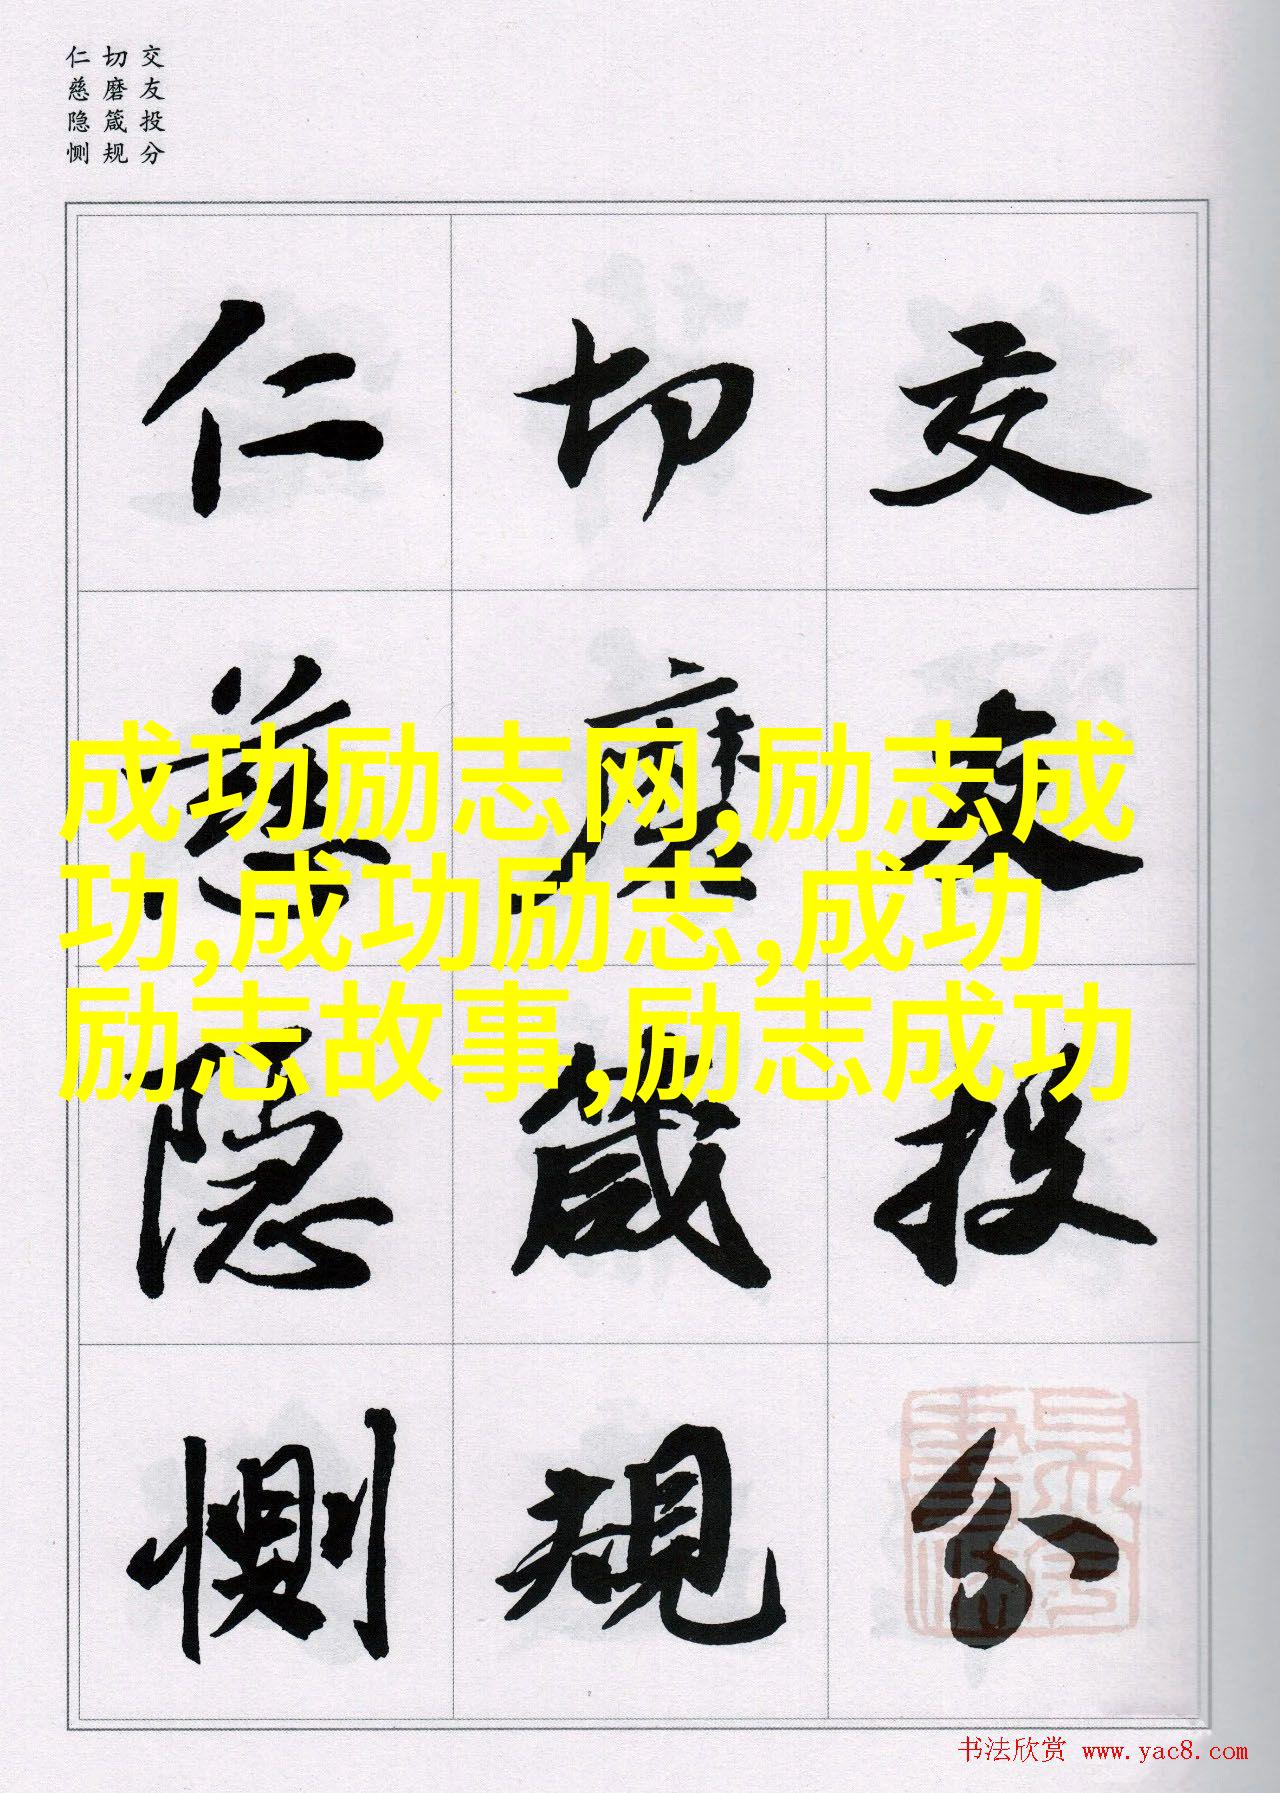 交友投分
切磨箴规
仁慈隐恻
交友投分
切磨箴規
仁慈隐恻
成功励志网,励志成
功,成功励志,成功
励志故事,励志成功
书法欣赏 www.yac8.com